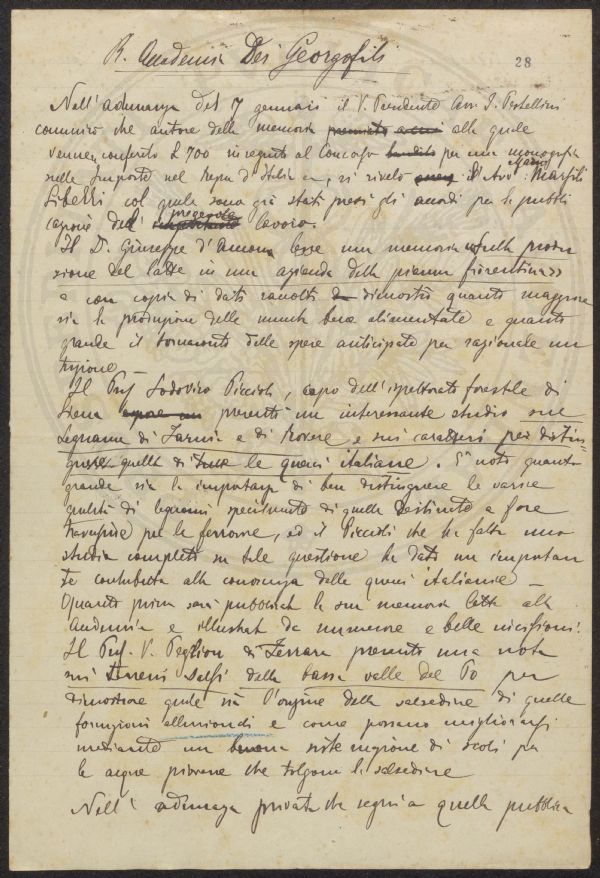 R. Accademia Dei Georgofili
28
Nell'adunanza del 7 gennaio il V. Presidente Avv. I. Pestellini
comunicò che autore della memoria premiata alla quale
venne conferito £ 700 in seguito al Concorso bandito per una monografia
sulle Imposte nel Regno d'Italia si rivelò il Avv: Mario Marsili
Libelli col quale sono già stati presi gli accordi per la pubbli
cazione del pregevole lavoro.
Il D. Giuseppe d'Ancona lesse una memoria "sulla produ
zione del latte in una azienda della pianura fiorentina"
e con copia di dati raccolti dimostrò quanto maggiore
sia la produzione delle mucche bene alimentate e quanto
grande il tornaconto delle spese anticipate per razionale nu
trizione —
Il Prof Lodovico Piccioli, capo dell'ispettorato forestale di
Siena presentò un interessante studio sul
Legname di Farnia e di Rovere e sui caratteri per distin
guere quello di tutte le querci italiane. È noto quanto
grande sia la importanza di ben distinguere le varie
qualità di legnami specialmente di quelle destinate a fare
traversine per le ferrovie, ed il Piccioli che ha fatto uno
studio completo su tale questione ha dato un importan
te contributo alla conoscenza delle querci italiane —
Quanto prima sarà pubblicata la sua memoria letta alla
Accademia e illustrata da numerose e belle incisioni.
Il Prof. V. Peglion di Ferrara presentò una nota
sui terreni salsi della bassa valle del Po per
dimostrare quale sia l'origine della salsedine di quelle
formazioni alluvionali e come possano migliorarsi
mediante un buona sistemazione di scoli per
le acque piovane che tolgono la salsedine
Nell'adunanza privata che seguì a quella pubblica